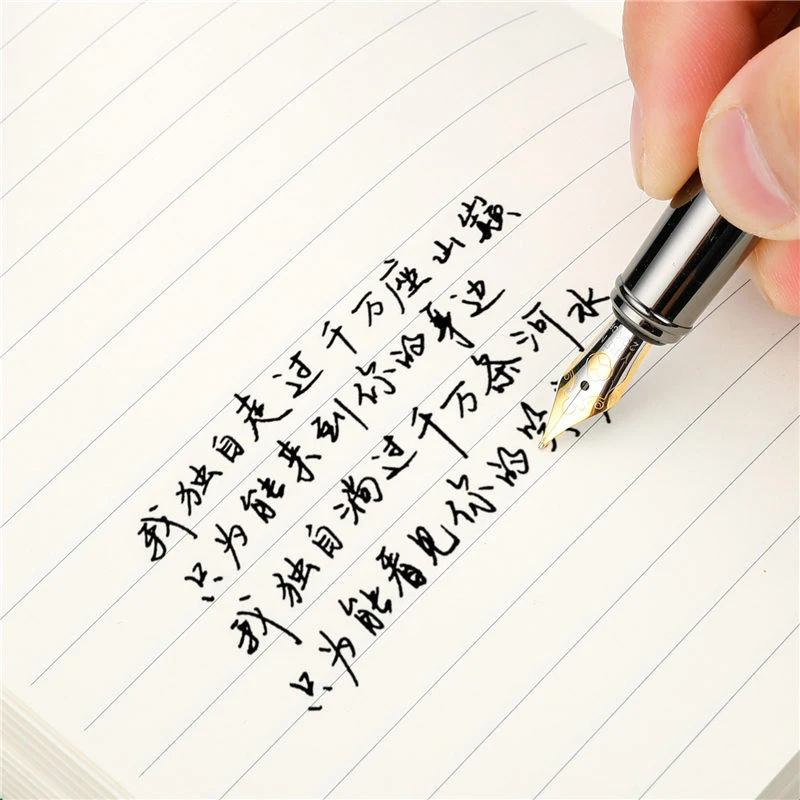 我独自走过千万座山巅
只为能来到你的身边
我独自淌过千万条河水
只为能看见你的笑